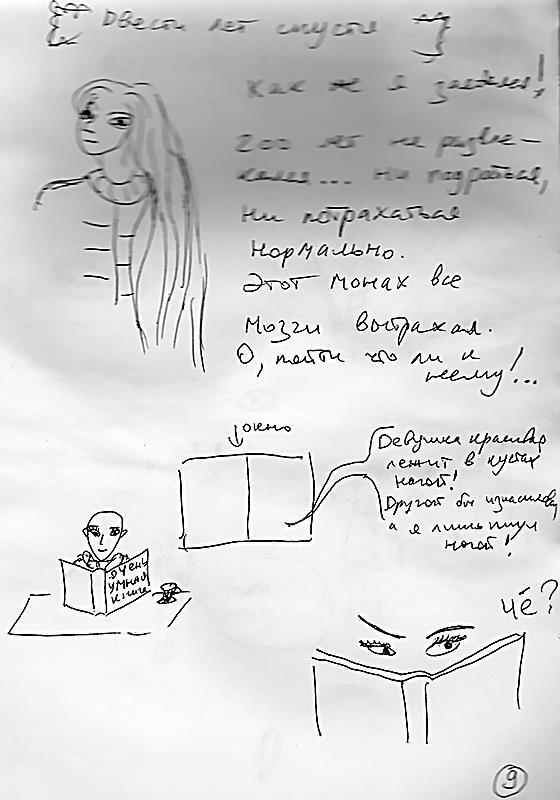 Двести лет спустя
Как же я заебался!
200 лет не развле-
кался... ни подраться,
ни потрахаться
нормально.
Этот монах все
мозги вытрахал.
О, пойти что ли к
нему!...
окно
Девушка красивая
лежит в кустах
нагой!
Другой бы изнасиловал,
а я лишь пнул
ногой!
Очень
умная
книга
Чё?
9